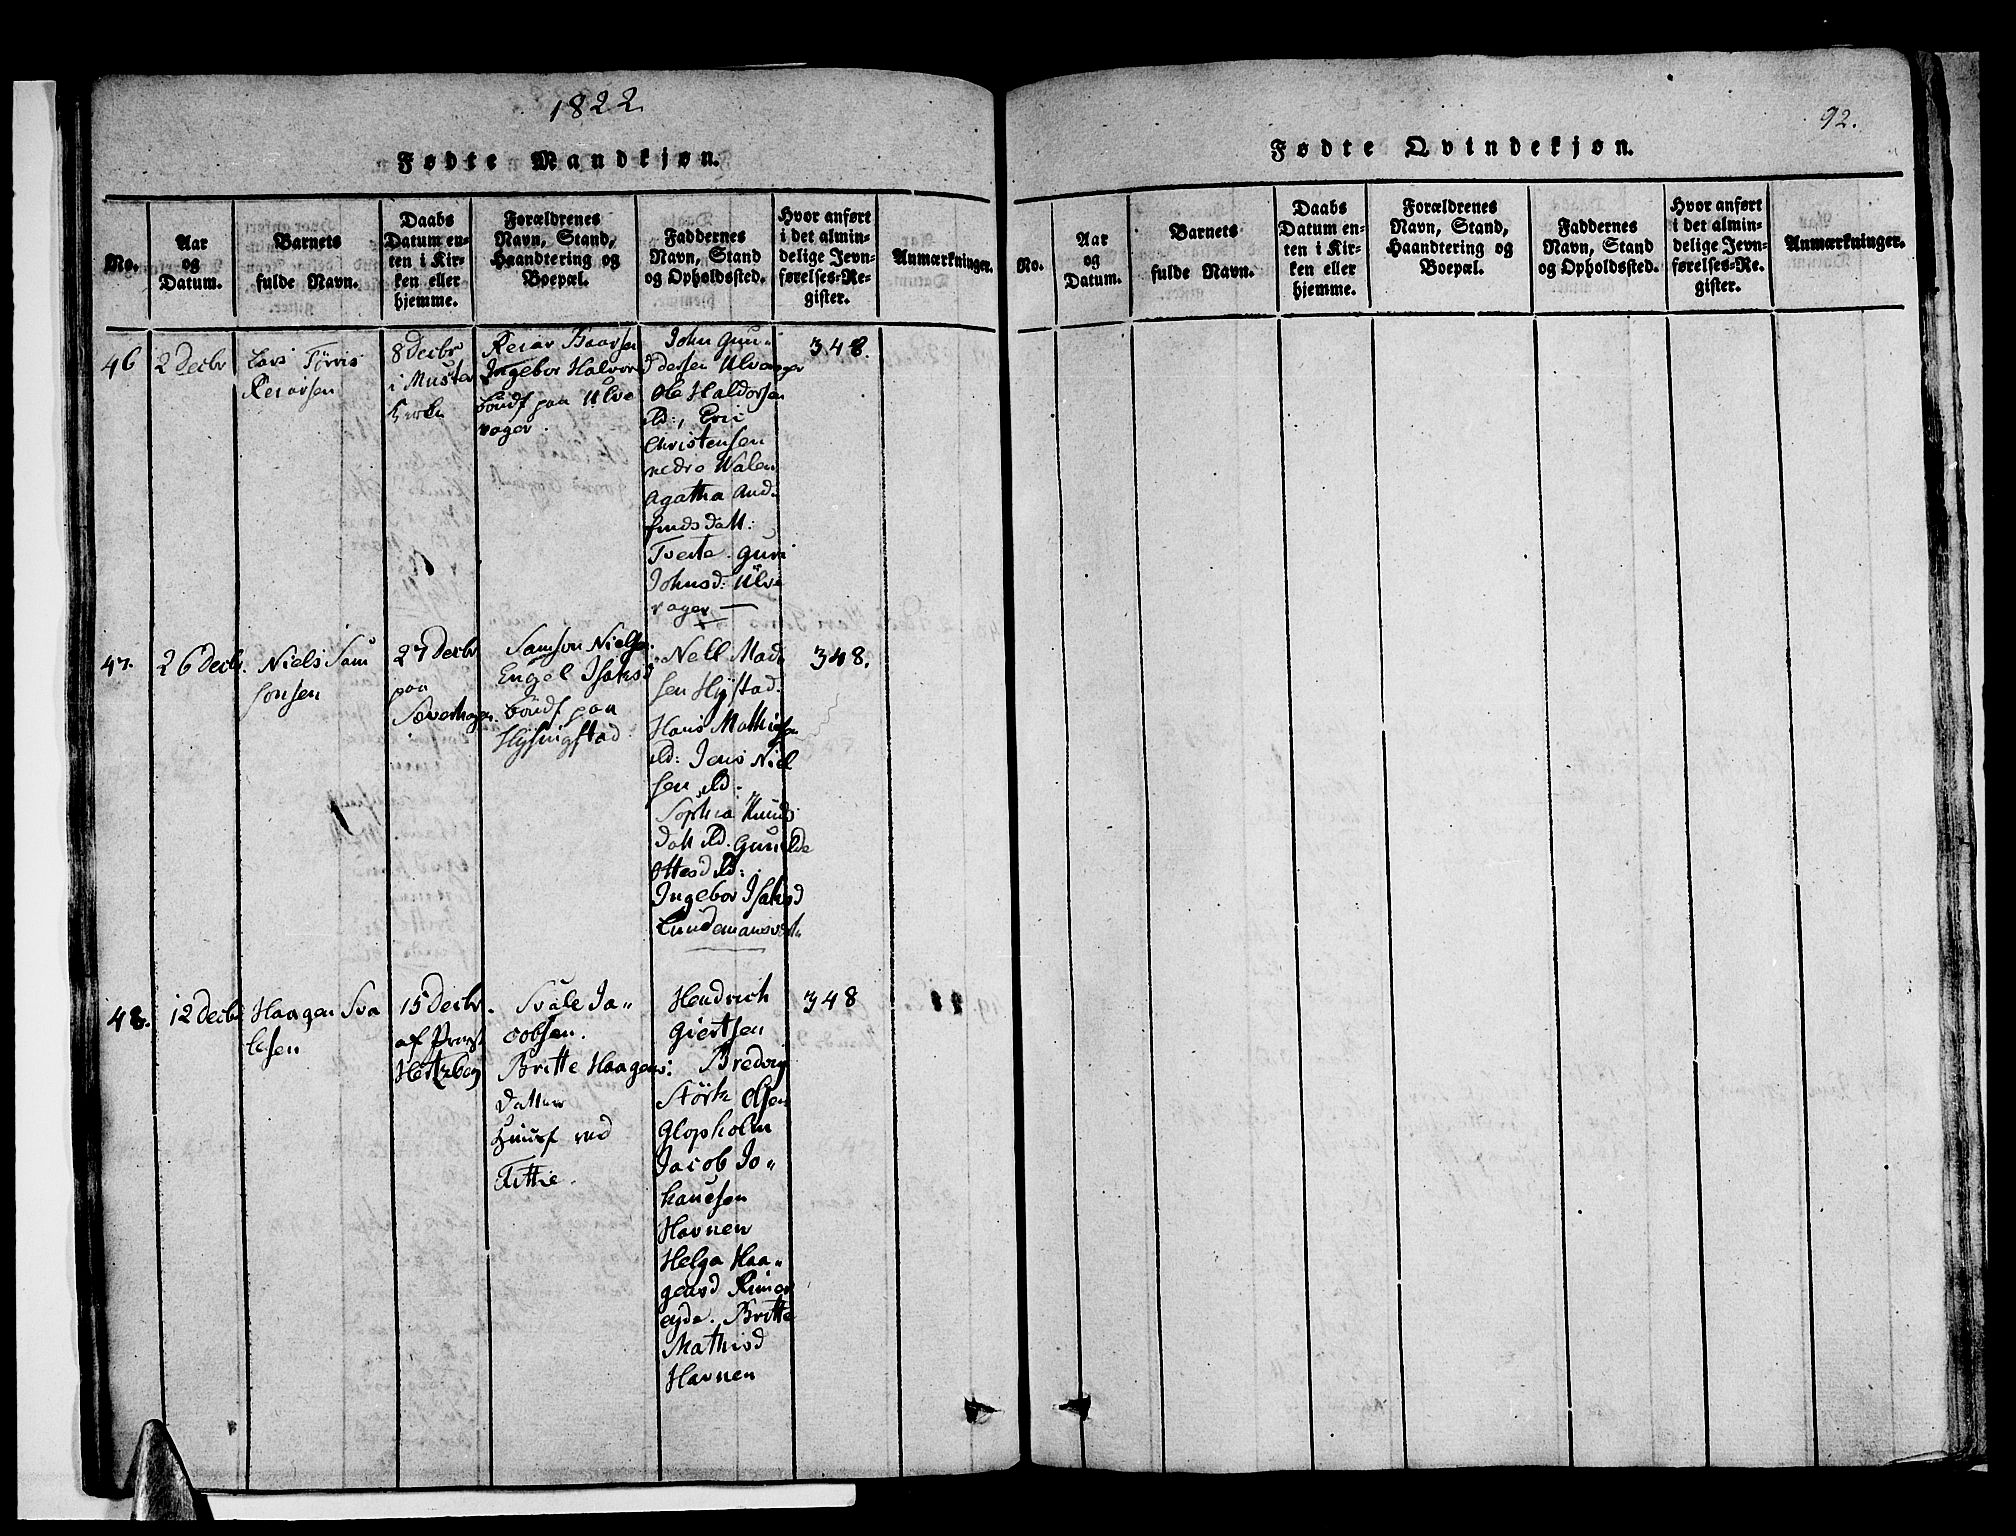 1822
Fødte Mandkjøn.
No.
Aar
og
Datum.
Barnets
fulde Navn.
Daabs
Datum en-
ten i Kir-
ken eller
hjemme.
Forældrenes
Navn, Stand,
Haandtering og
Boepæl.
Faddernes
Navn, Stand
og Opholdssted.
Hvor anført
i det almin-
delige Jevn-
førelses-Re-
gister.
Anmærkninger.
46
2 Decbr
Lars
Reiarsen
8 Decbr
i Muster
Kirke
Reiar Baarsen
Ingebor Halvor
paa Ulve
vager.
John Gun-
dersen Ulvavager
Ole Haldorsen
ibd:, Eric
Christensen
nedre Walen
Agatha And-
finds datt:
Tveite. Guri
Johnsd: Ulve
vager —
348.
47.
26 Decbr.
Niels Sam
sonsen
27 Decbr
paa
Samson Nielse.
Engel Isaksd
paa
Hysingstad
Nell Mad
sen Hystad.
Hans Mathiesen
ibd: Jens Niel
sen ibd.
Sophia Knuds
datt ibd. Gunilde
Ottesd ibd:
Ingebor Isaksd
348.
48.
12 Decbr
Haagen Sva
lesen
15 Decbr.
af Provst
Hertzberg
Svale Ja-
cobsen.
Britte Haagens:
datter
ved
Fittie.
Hendrich
Giertsen
Bredvig
Størk Olsen
Glopholm
Jacob Jo-
hansen
Havnen
Helga Haa-
gensd Rimer
eyde. Britte
Mathisd
Havnen
348
92.
Fødte Qvindekjøn.
No.
Aar
og
Datum.
Barnets
fulde Navn.
Daabs
Datum en-
ten i Kir-
ken eller
hjemme.
Forældrenes
Navn, Stand,
Haandtering og
Boepæl.
Faddernes
Navn, Stand
og Opholdssted.
Hvor anført
i det almin-
delige Jevn-
førelses-Re.
gister.
Anmærkninger.